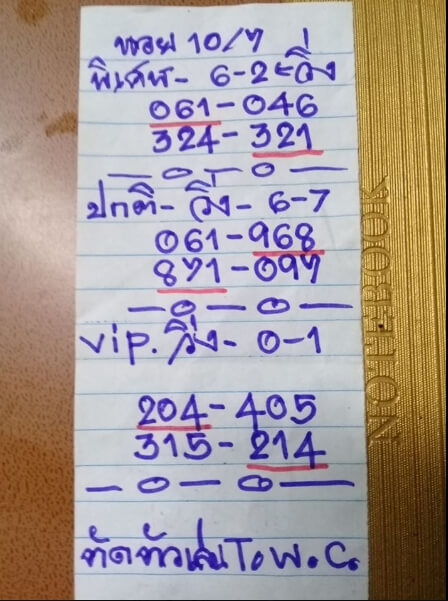 หวย 10/7
พิเศษ- 6-2 วิ่ง
061-046
324-321
ปกติ- วิ่ง- 6-7
061-968
871-097
vip. วิ่ง- 0-1
204-405
315-214
T.W.C.
NOTEBOOK